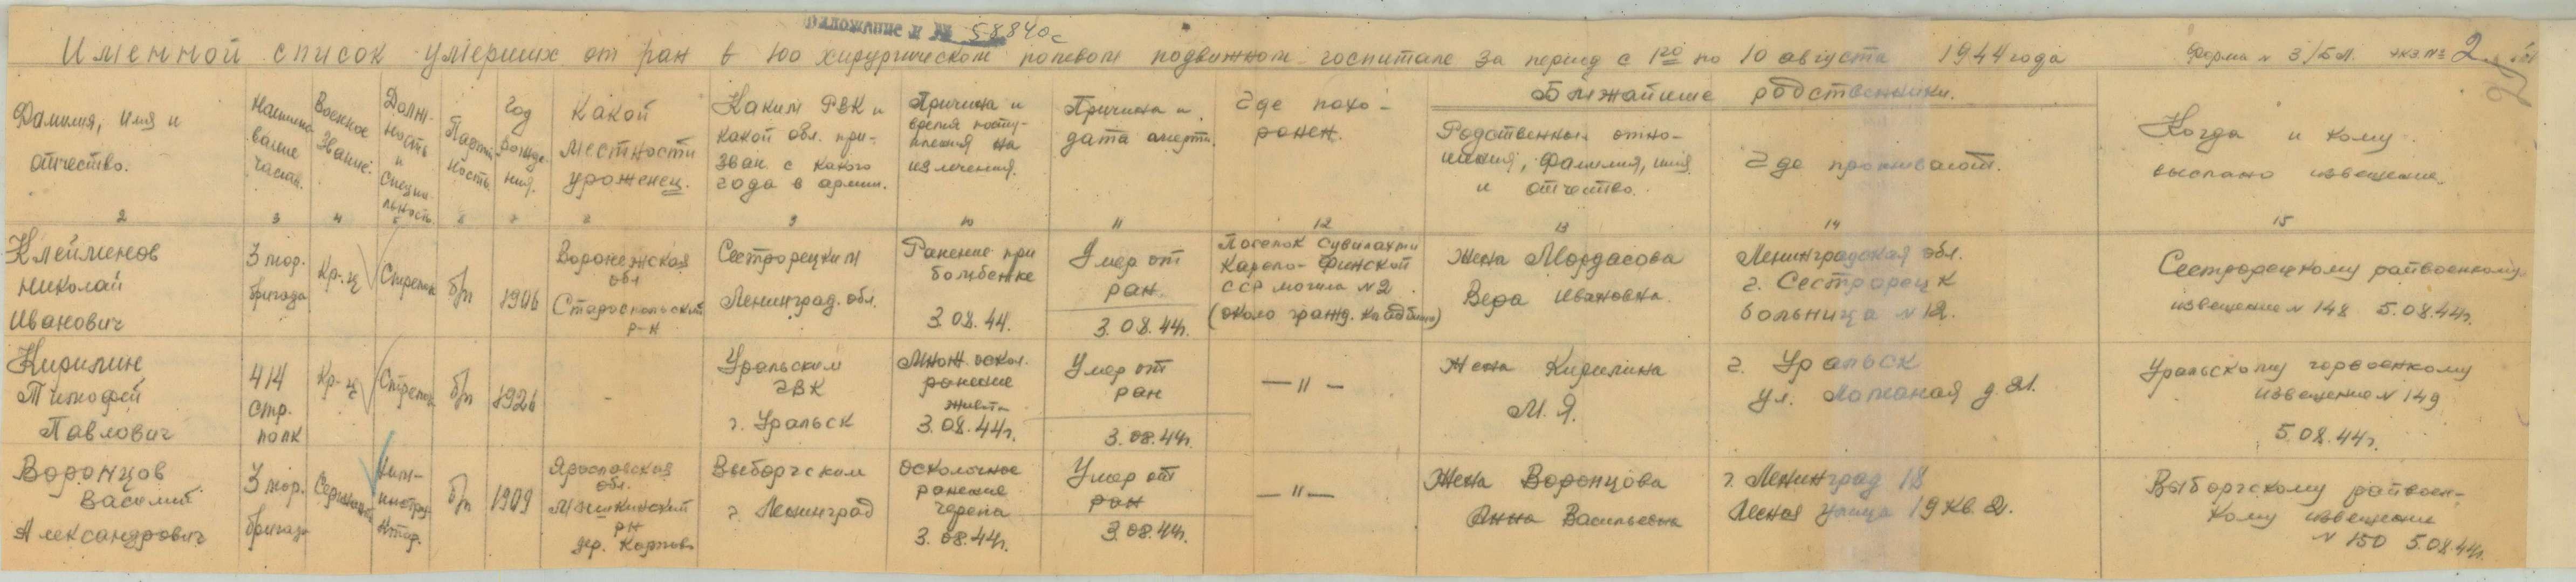 Приложение к № 58840с
Именной список умерших от ран в 100 хирургическом полевом подвижном госпитале за период с 1го по 10 августа 1944 года
Форма № 3/БП. экз № 2
Фамилия, имя и отчество.
Наимено-
вание
части.
Военное
звание.
Долж-
ность
и
специа-
льность
Партий-
ность.
Год
рожде-
ния.
Какой
местности
уроженец.
Каким РВК и
какой обл. при-
зван. с какого
года в армии.
Причина и
время посту-
пления на
излечения.
Причина и
дата смерти.
Где похо-
ронен.
Ближайшие родственники.
Родственные отно-
шения, фамилия, имя
и отчество.
Где проживают.
Когда и кому
выслано извещение.
2 3 4 5 6 7 8 9 10 11 12 13 14 15
Клейменов
Николай
Иванович
3 мор.
бригада
Кр-ц
Стрелок
б/п
1906
Воронежская
обл
Старооскольский
р-н
Сестрорецким
Ленинград. обл.
Ранение при
бомбежке
3.08.44.
Умер от
ран.
3.08.44г.
Поселок Сувилахти
Карело-Финской
ССР могила №2
(около гражд. кладбища)
Жена Мордасова
Вера Ивановна.
Ленинградская обл.
г. Сестрорецк
больница № 12.
Сестрорецкому райвоенкому
извещение № 148 5.08.44г.
Кирилин
Тимофей
Павлович
414
стр.
полк
Кр-ц
Стрелок
б/п
1926
-
Уральским
ГВК
г. Уральск
Множ. оскол.
ранение
живота
3.08.44г.
Умер от
ран
3.08.44г.
—"—
Жена Кирилина
М. Я.
г. Уральск
ул. д. 21.
Уральскому горвоенкому
извещение № 149
5.08.44г.
Воронцов
Василий
Александрович
3 мор.
бригада
Сержант
Хим-
инстру-
ктор.
б/п
1909
Ярославская
обл.
Мышкинский
рн
дер. Карпово
Выборгским
г. Ленинград
Осколочное
ранение
черепа
3.08.44г.
Умер от
ран
3.08.44г.
—"—
Жена Воронцова
Анна Васильевна
г. Ленинград 18
Лесная улица 19 кв 2.
Выборгскому райвоен-
кому извещение
№ 150 5.08.44г.